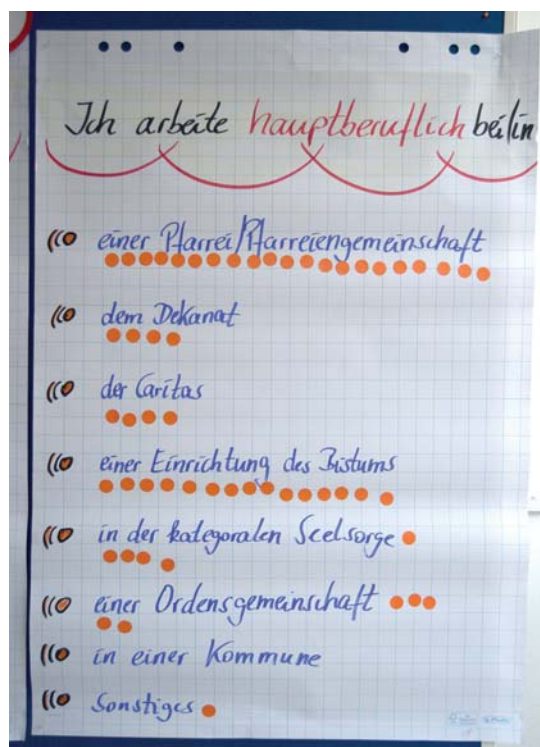 Ich arbeite hauptberuflich bei/in
einer Pfarrei/Pfarreiengemeinschaft
dem Dekanat
der Caritas
einer Einrichtung des Bistums
in der kategoralen Seelsorge
einer Ordensgemeinschaft
in einer Kommune
Sonstiges